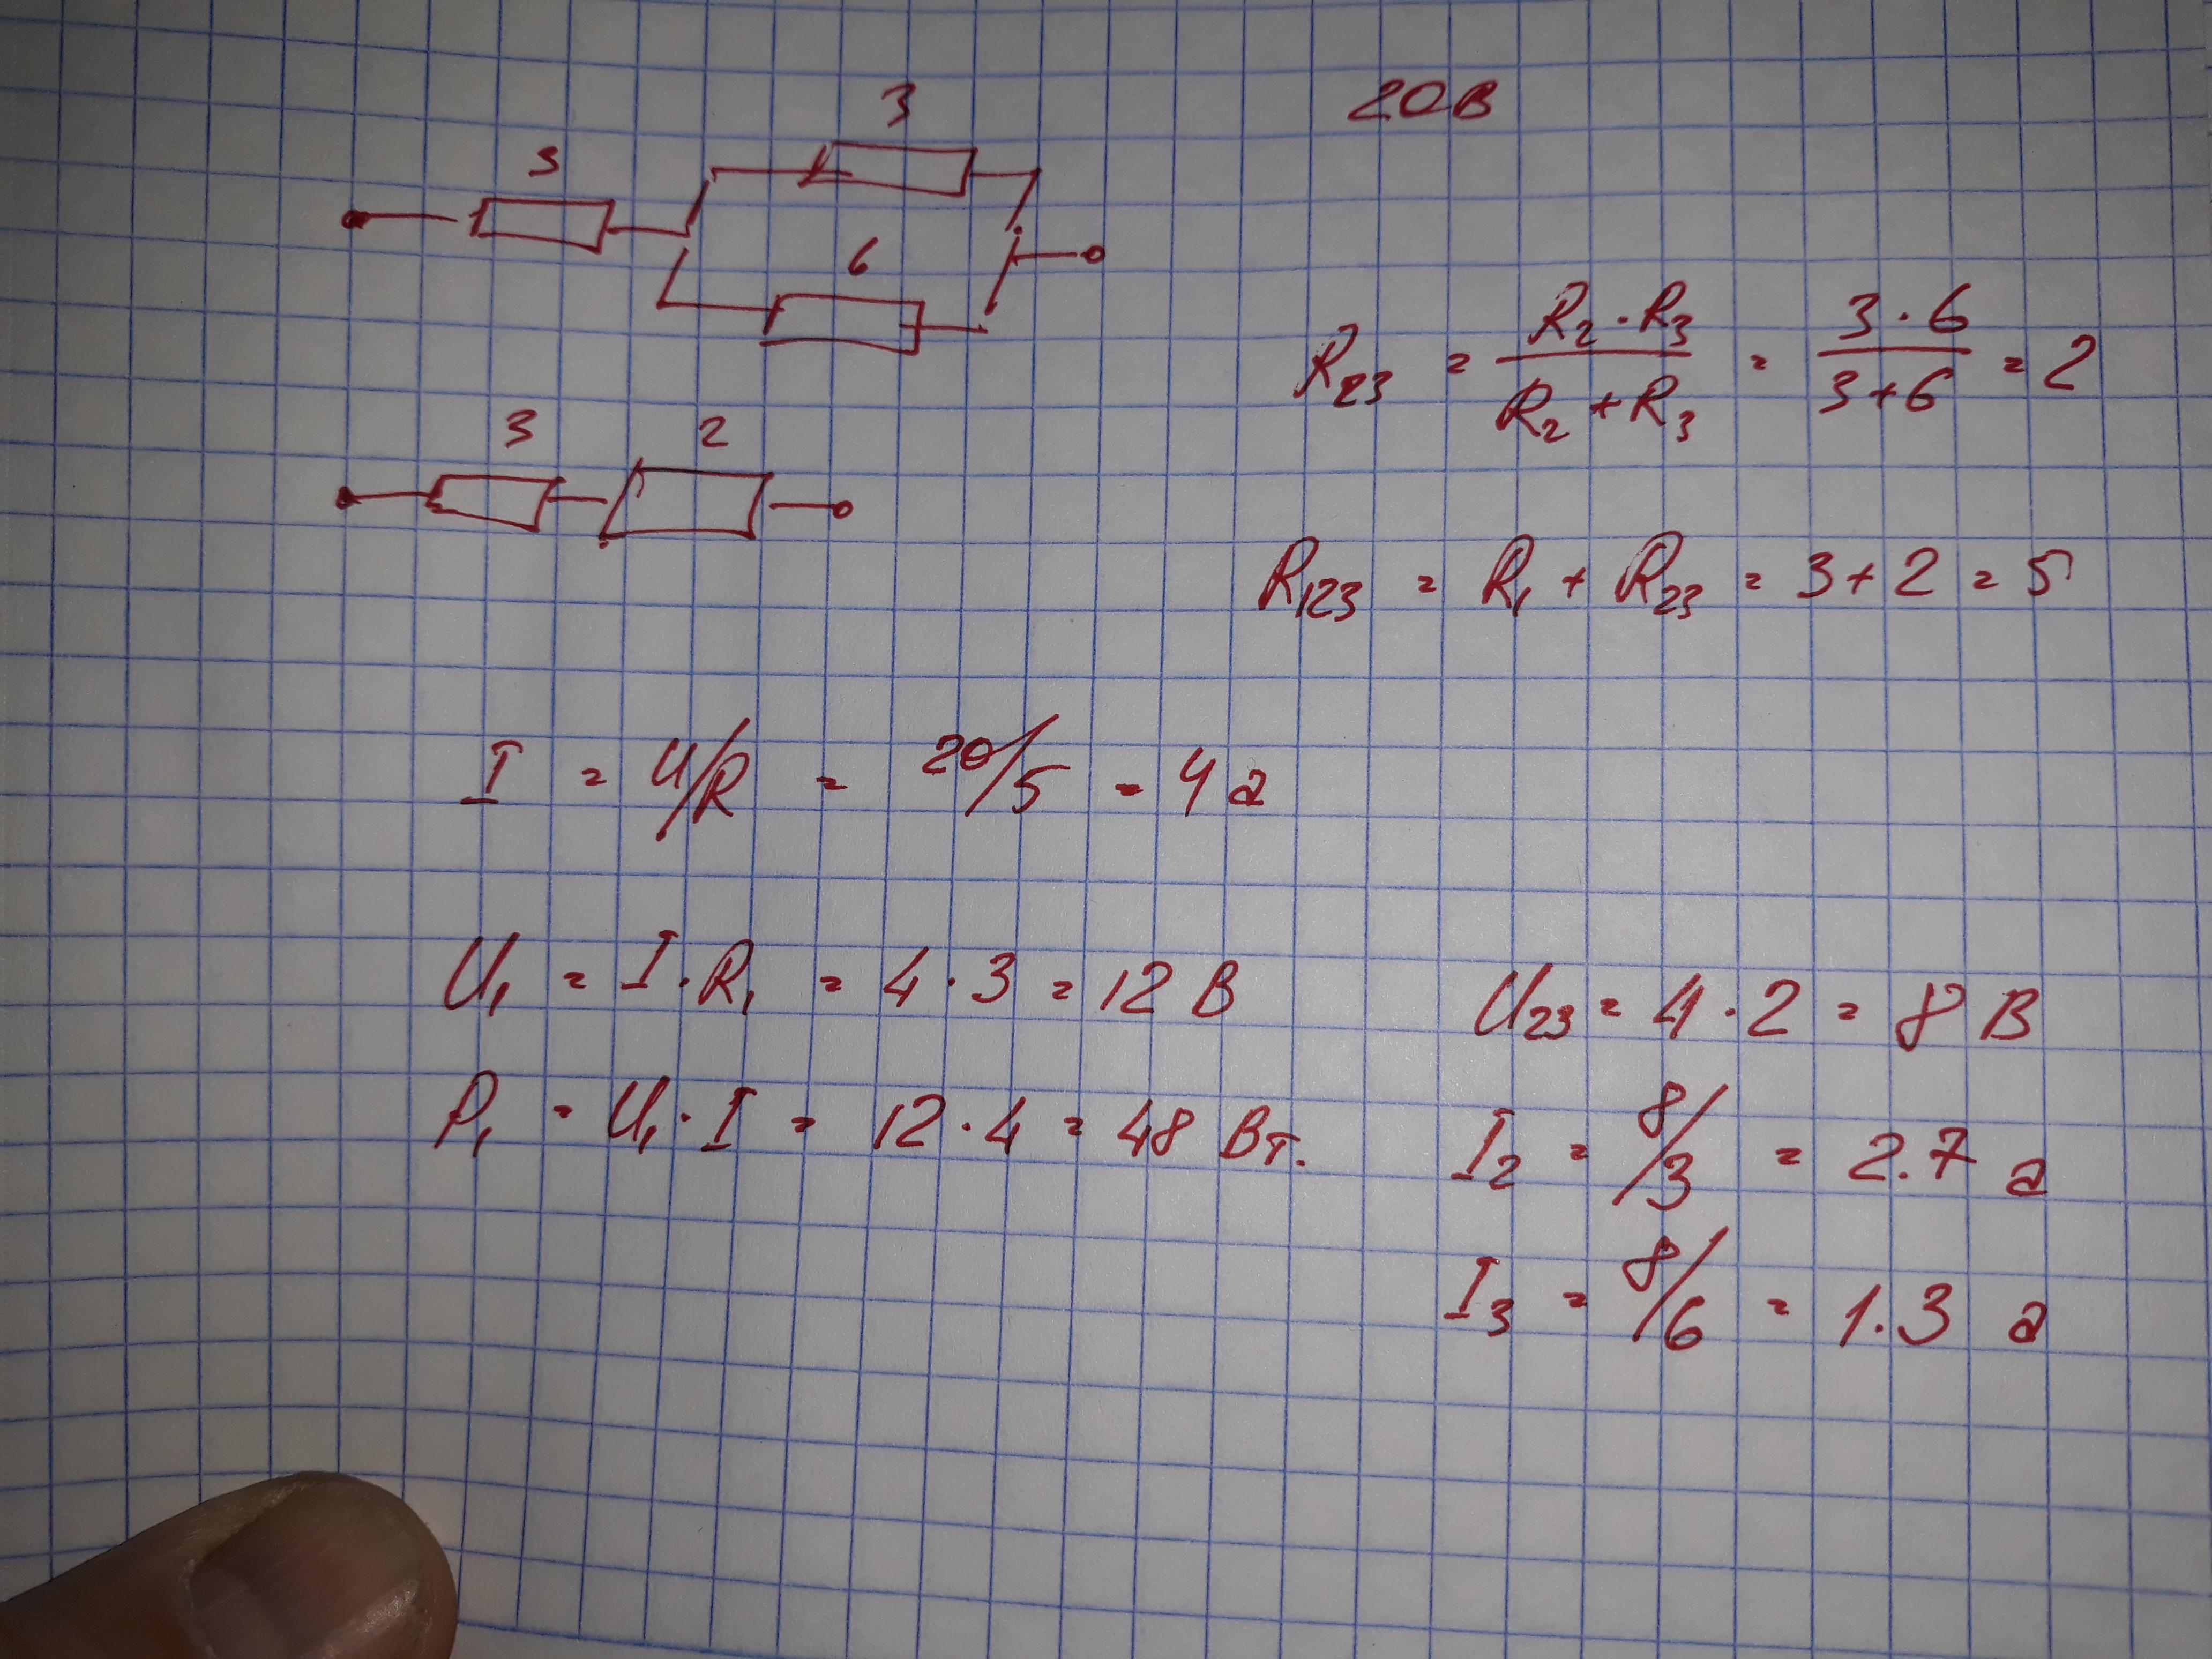 3
20В
3
6
R₂₃ = (R₂ · R₃)/(R₂ + R₃) = (3 · 6)/(3+6) = 2
3 2
R₁₂₃ = R₁ + R₂₃ = 3+2 = 5
I = U/R = 20/5 = 4 а
U₁ = I · R₁ = 4 · 3 = 12 В
U₂₃ = 4 · 2 = 8 В
P₁ = U₁ · I = 12 · 4 = 48 Вт.
I₂ = 8/3 = 2.7 а
I₃ = 8/6 = 1.3 а